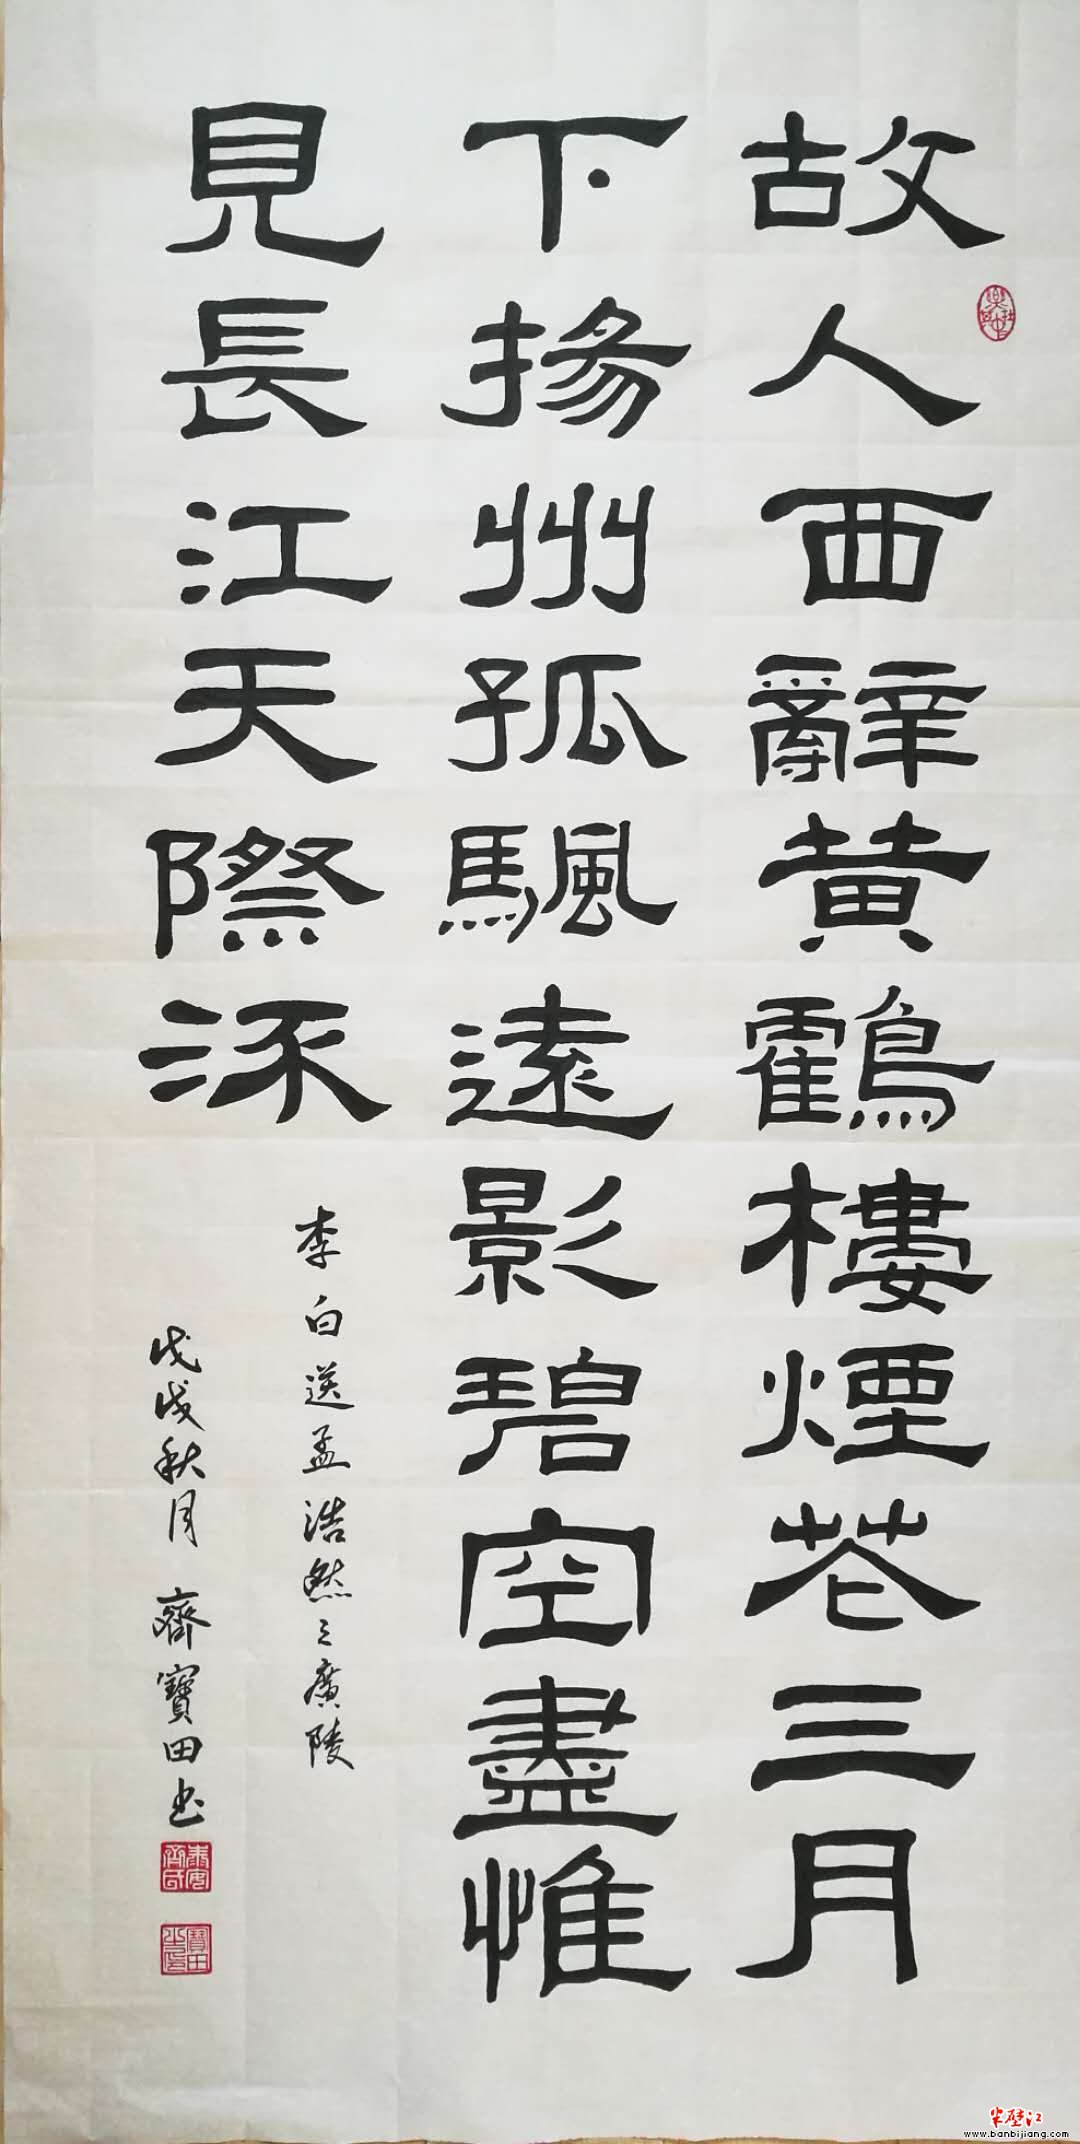 故人西辭黄鸖樓煙花三月
下揚州孤颿遠影碧空盡惟
見長江天際㳅
李白送孟浩然之廣陵
戊戌秋月 齊寶田书
泰安齊氏
寶田之印
半壁江
www.banbijiang.com